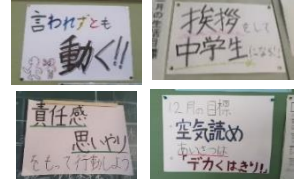 言われずとも
動く!!
挨拶をして
中学生になろう
責任感
思いやり
をもって行動しよう
12月の目標
空気読め
あいさつは
「デカくはきり!」